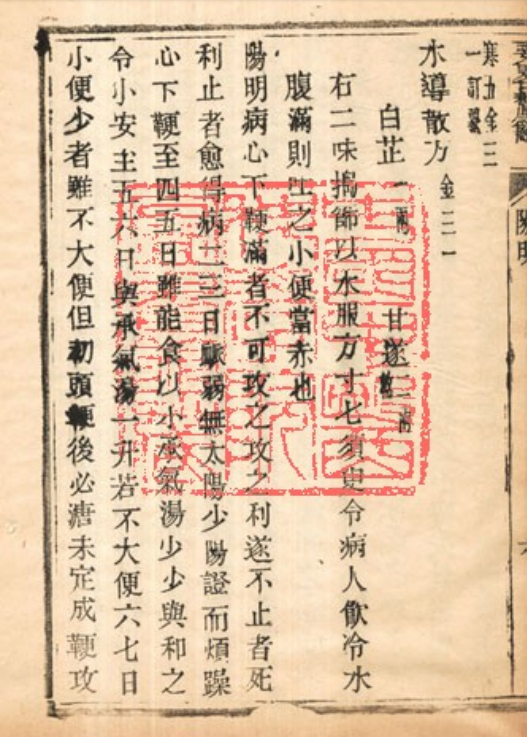 陽明
水導散方
白芷一兩 甘遂二兩
右二味搗篩以水服方寸匕須臾令病人飲冷水
腹滿則吐之小便當赤也
陽明病心下鞕滿者不可攻之攻之利遂不止者死
利止者愈得病二三日脈弱無太陽少陽證而煩躁
心下鞕至四五日雖能食以小承氣湯少少與和之
令小安至五六日與承氣湯一升若不大便六七日
小便少者雖不大便但初頭鞕後必溏未定成鞕攻